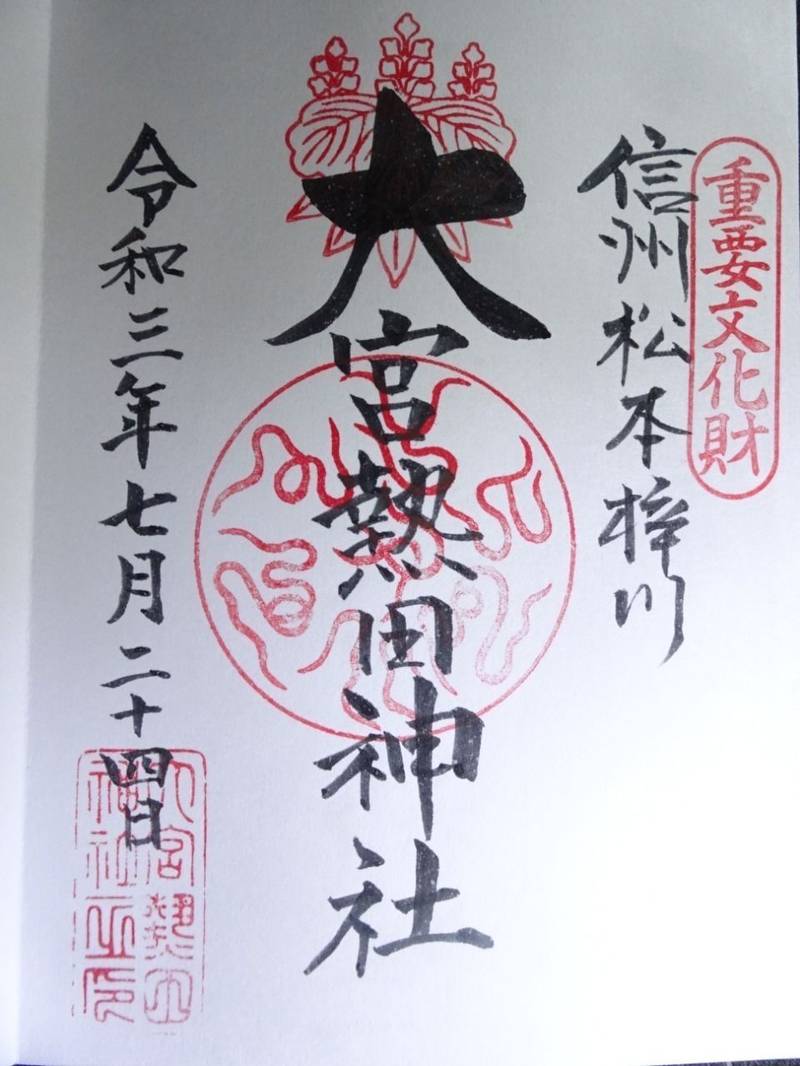 重要文化財
信州松本梓川
大宮熱田神社
令和三年七月二十四日
大宮熱田
神社之印